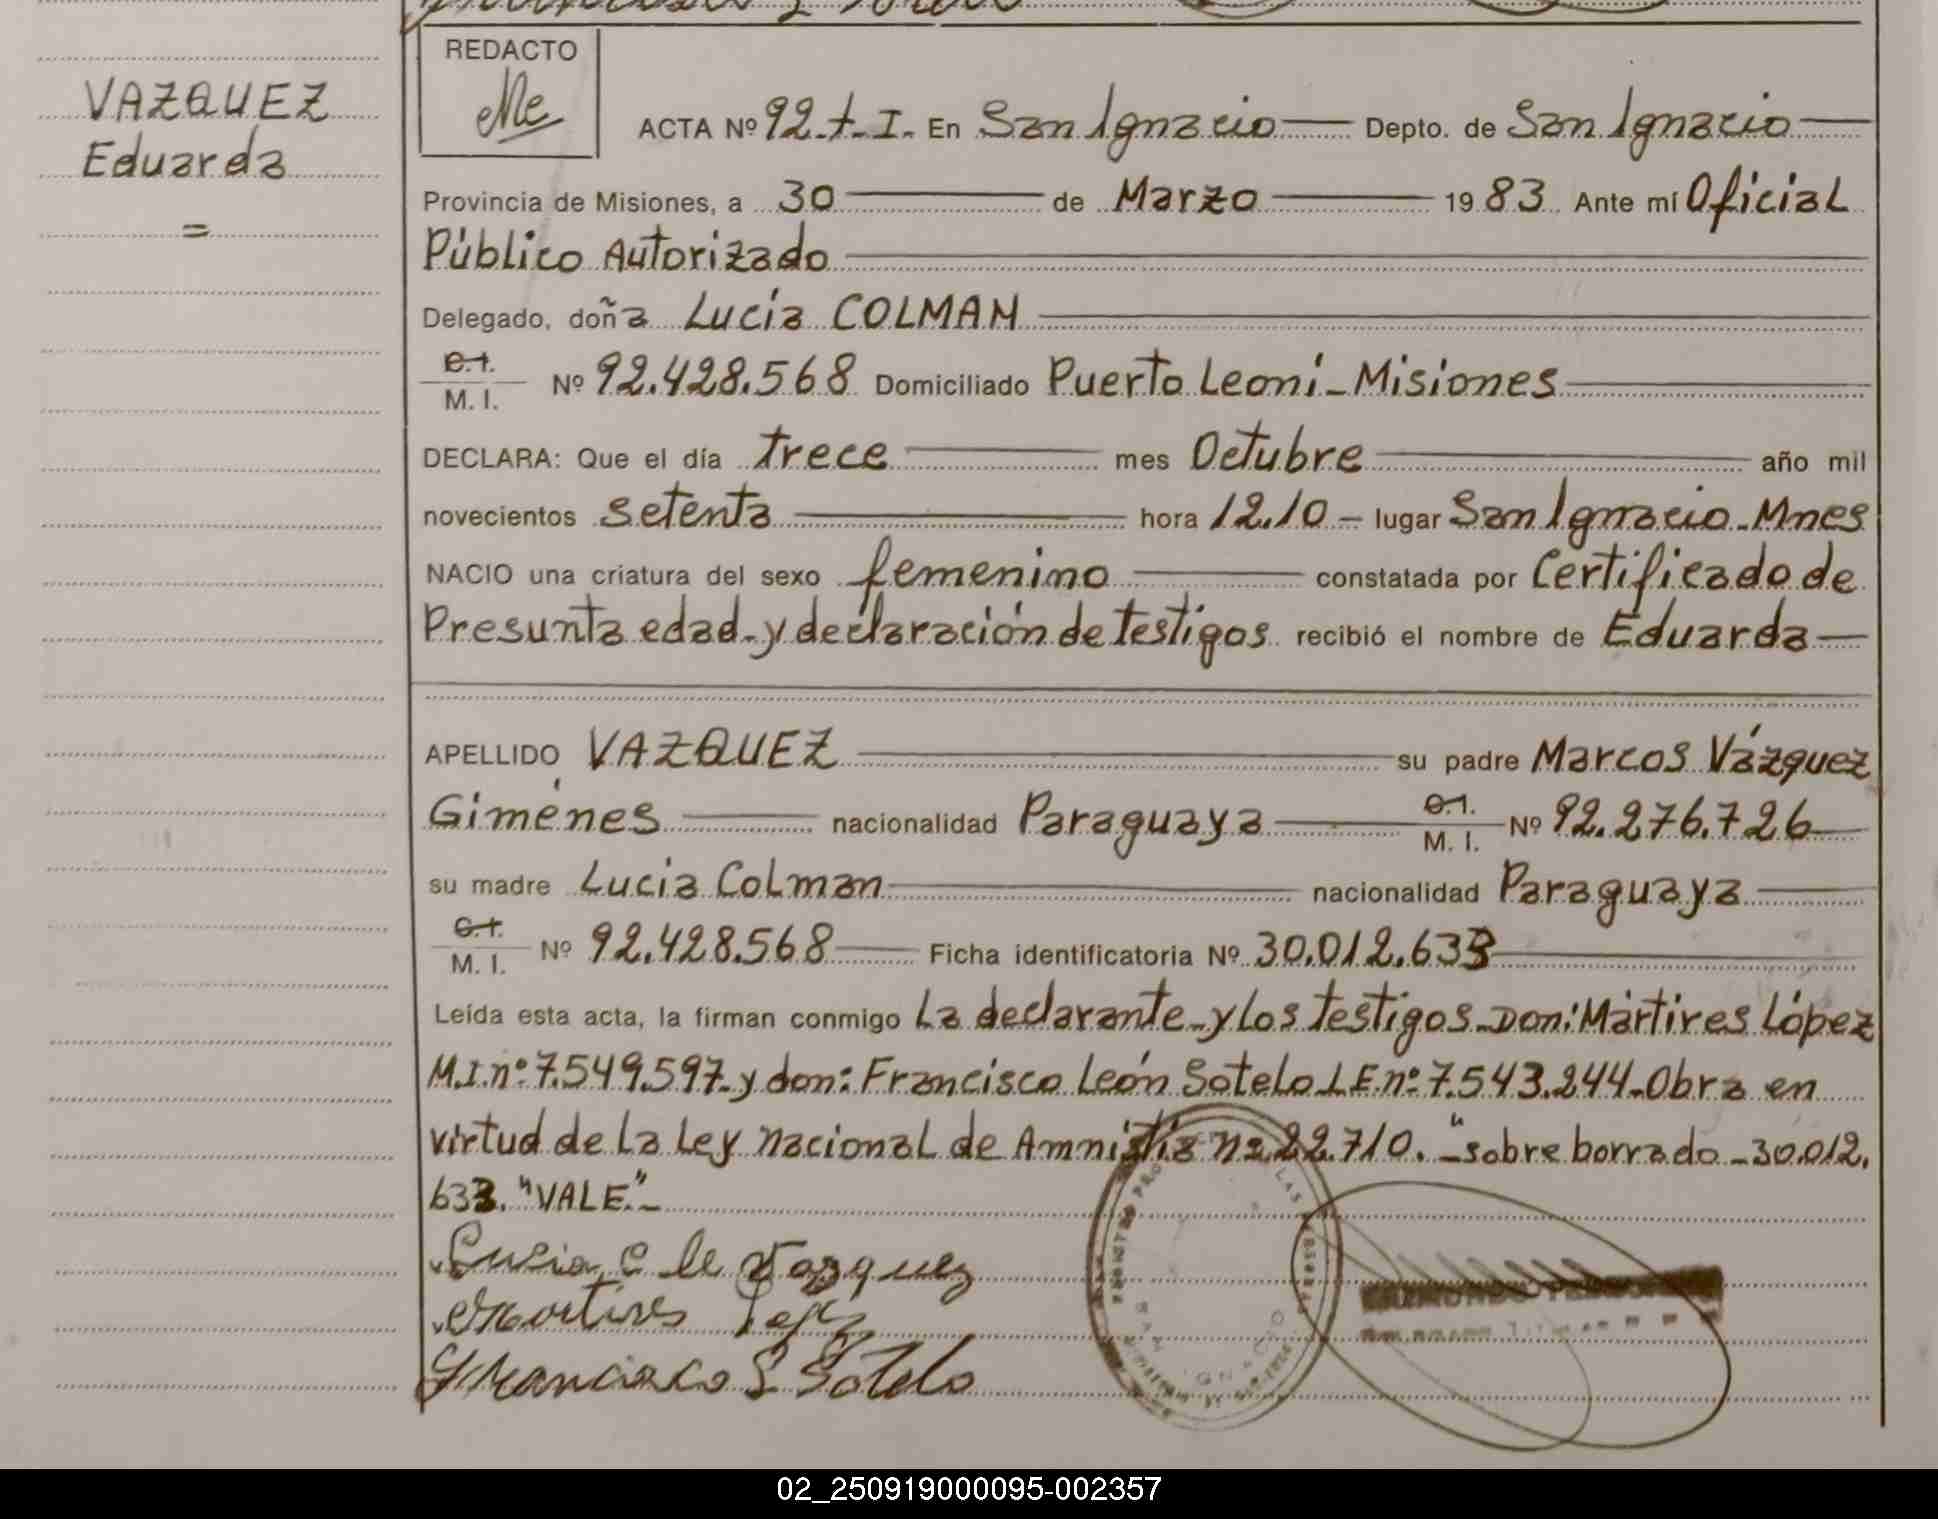 VAZQUEZ
Eduarda
=
REDACTO
ACTA Nº 92.t.I. En San Ignacio Depto. de San Ignacio
Provincia de Misiones, a 30 de Marzo 1983 Ante mí Oficial
Público Autorizado
Delegado, doña Lucía COLMAN
C.I.
M. I. Nº 92.428.568 Domiciliado Puerto Leoni - Misiones
DECLARA: Que el día trece mes Octubre año mil
novecientos setenta hora 12.10 - lugar San Ignacio - Mnes
NACIO una criatura del sexo femenino constatada por Certificado de
Presunta edad - y declaración de testigos recibió el nombre de Eduarda
APELLIDO VAZQUEZ su padre Marcos Vázquez
Giménes nacionalidad Paraguaya C.I. M. I. Nº 92.276.726
su madre Lucia Colman nacionalidad Paraguaya
C.I.
M. I. Nº 92.428.568 Ficha identificatoria Nº 30.012.633
Leída esta acta, la firman conmigo La declarante - y los testigos - Don: Mártires López
M.I. nº 7.549.597 - y don: Francisco León Sotelo L.E. nº 7.543.244 - Obra en
virtud de la Ley Nacional de Amnistia nº 22.710. - "sobre borrado - 30.012.
633. "VALE". -
Lucia C de Vazquez
Martires Lopez
Francisco L Sotelo
SAN IGNACIO
02_250919000095-002357